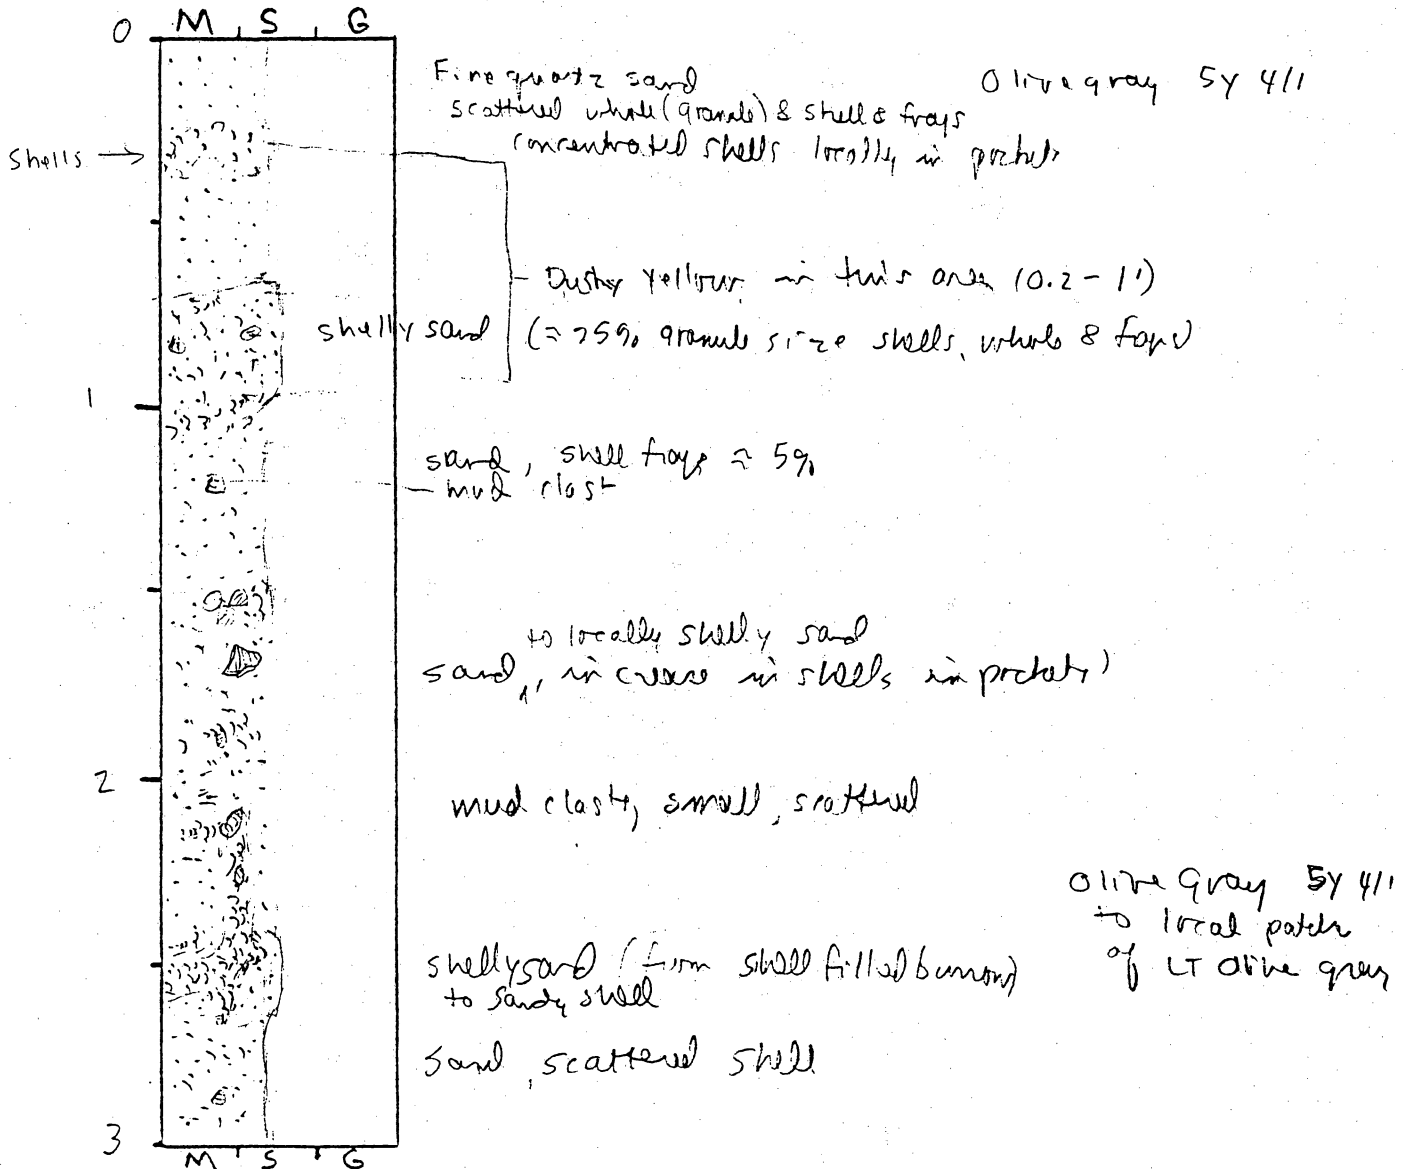 M S G
0
Fine quartz sand
Olive gray 5Y 4/1
scattered whole (granule) & shell & frags
concentrated shells locally in pockets
Shells →
Dusky Yellow in this area (0.2 - 1')
shelly sand (≈ 25% granule size shells, whole & frags)
1
sand, shell frags ≈ 5%
mud clast
to locally shelly sand
sand ^, increase in shells in pockets)
2
mud clasts, small, scattered
Olive Gray 5Y 4/1
to local patch
of LT Olive gray
shelly sand (from shell filled burrow)
to sandy shell
sand, scattered shell
3
M S G